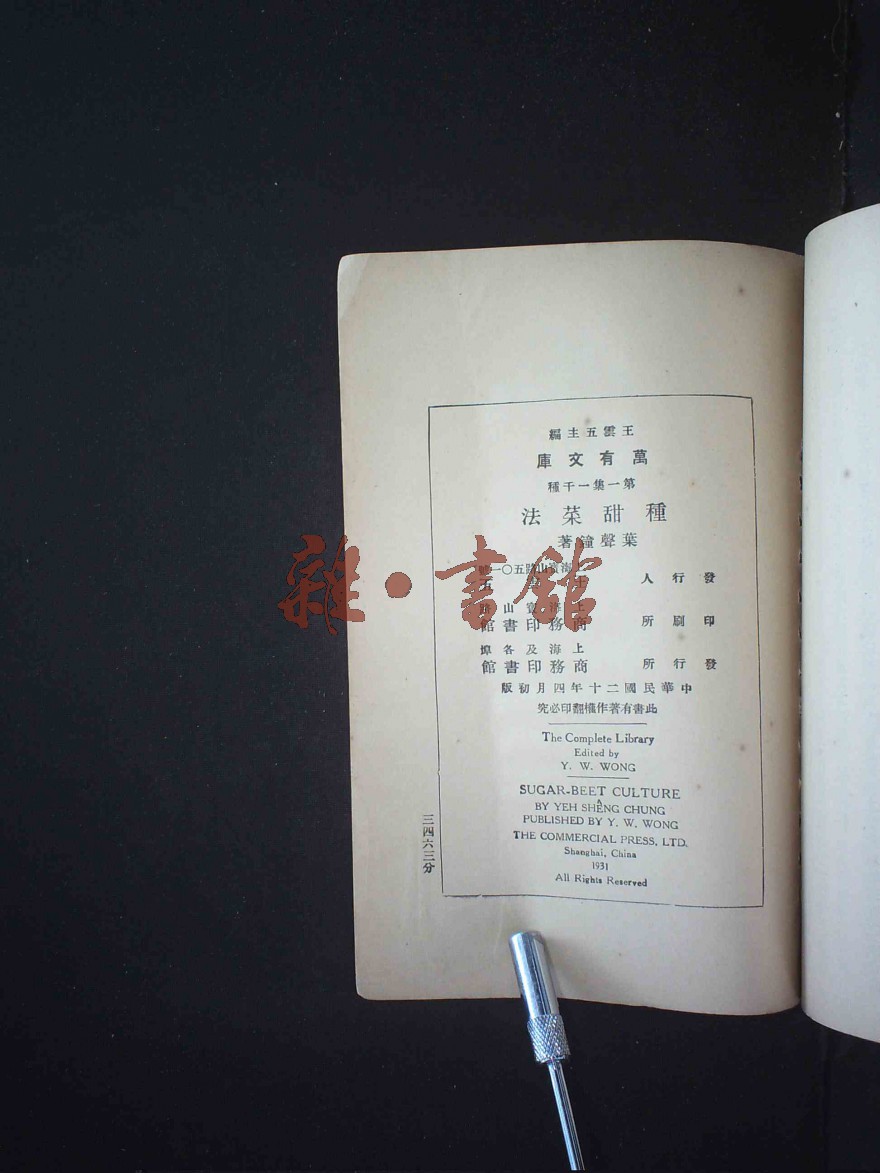 王雲五主編
萬有文庫
第一集一千種
種甜菜法
葉聲鐘著
上海寶山路五〇一號
發行人
上海寶山路
印刷所 商務印書館
上海及各埠
發行所 商務印書館
中華民國二十年四月初版
此書有著作權翻印必究
The Complete Library
Edited by
Y. W. WONG
SUGAR-BEET CULTURE
BY YEH SHÊNG CHUNG
PUBLISHED BY Y. W. WONG
THE COMMERCIAL PRESS, LTD.
Shanghai, China
1931
All Rights Reserved
三四六三分
雜·書館